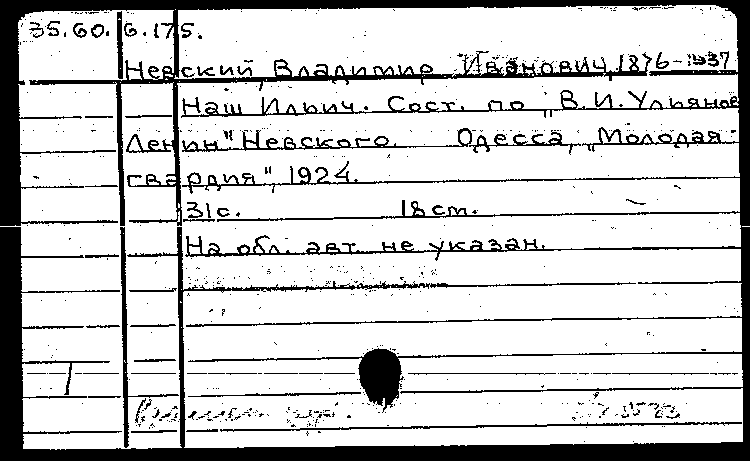 35.60.6.175.
Невский, Владимир Иванович, 1876-1937
Наш Ильич. Сост. по „В.И.Ульянов
Ленин" Невского. Одесса, „Молодая
гвардия", 1924.
31с. 18 cm.
На обл. авт. не указан.
1